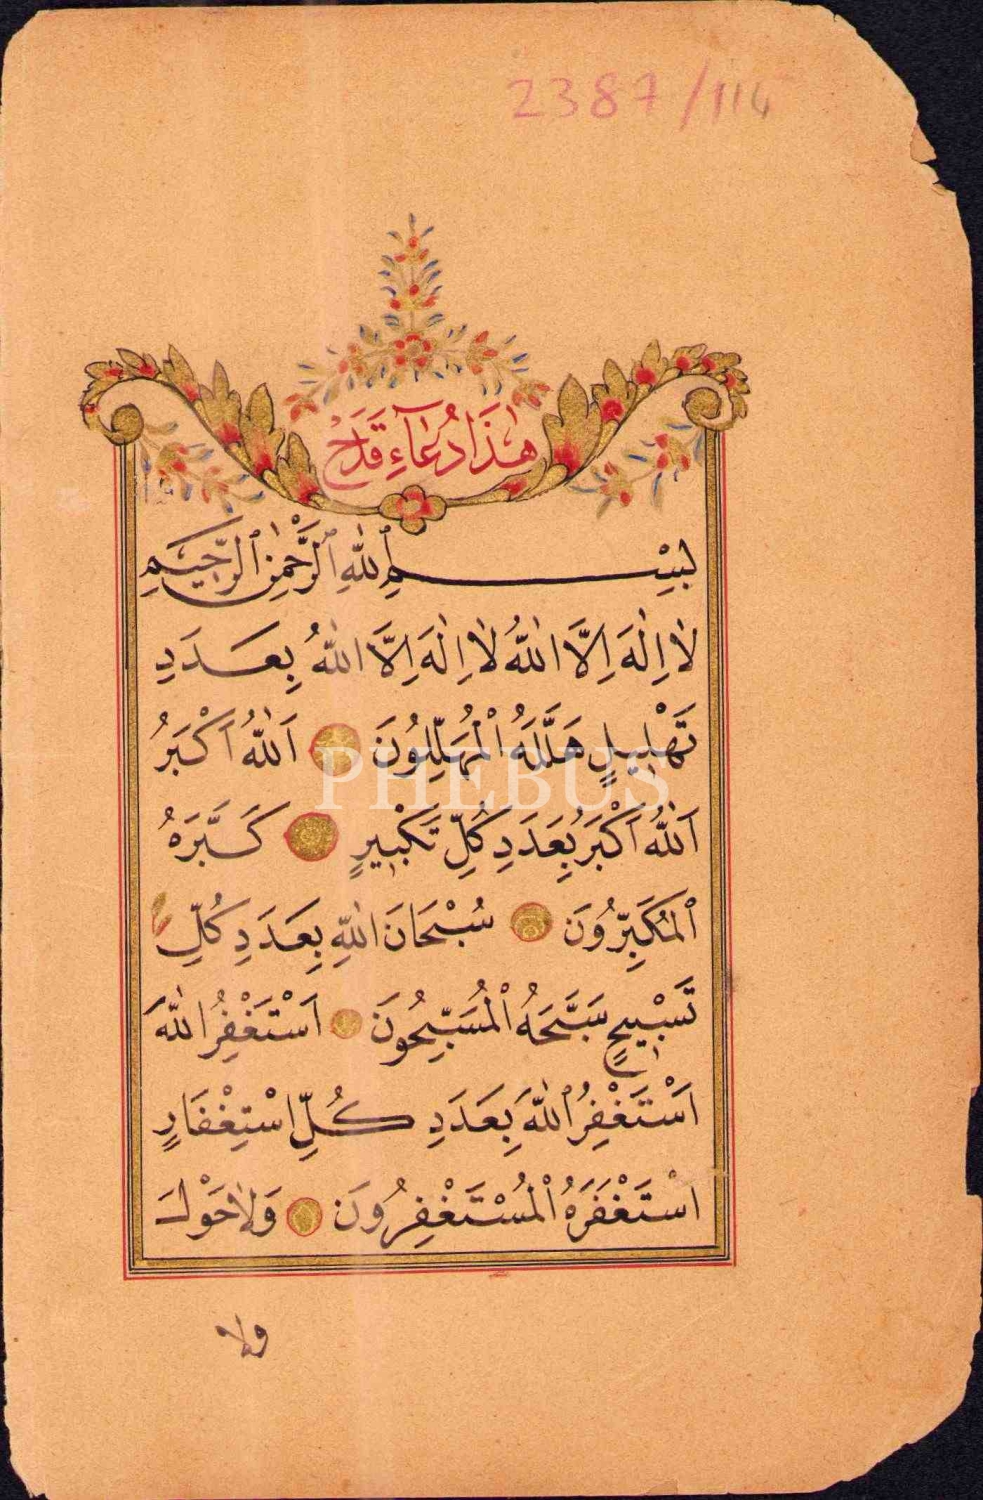 2387/114
هٰذَا دُعَآءِ قَدَحْ
بِسْمِ اللّٰهِ الرَّحْمٰنِ الرَّحِيمِ
لٰا اِلٰهَ اِلَّا اللّٰهُ لٰا اِلٰهَ اِلَّا اللّٰهُ بِعَدَدِ
تَهْلِيلٍ هَلَّلَهُ الْمُهَلِّلُونَ اَللّٰهُ اَكْبَرُ
PHEBUS
اَللّٰهُ اَكْبَرُ بِعَدَدِ كُلِّ تَكْبِيرٍ كَبَّرَهُ
الْمُكَبِّرُونَ سُبْحَانَ اللّٰهِ بِعَدَدِ كُلِّ
تَسْبِيحٍ سَبَّحَهُ الْمُسَبِّحُونَ اَسْتَغْفِرُ اللّٰهَ
اَسْتَغْفِرُ اللّٰهَ بِعَدَدِ كُلِّ اسْتِغْفَارٍ
اسْتَغْفَرَهُ الْمُسْتَغْفِرُونَ وَلٰا حَوْلَ
ولا